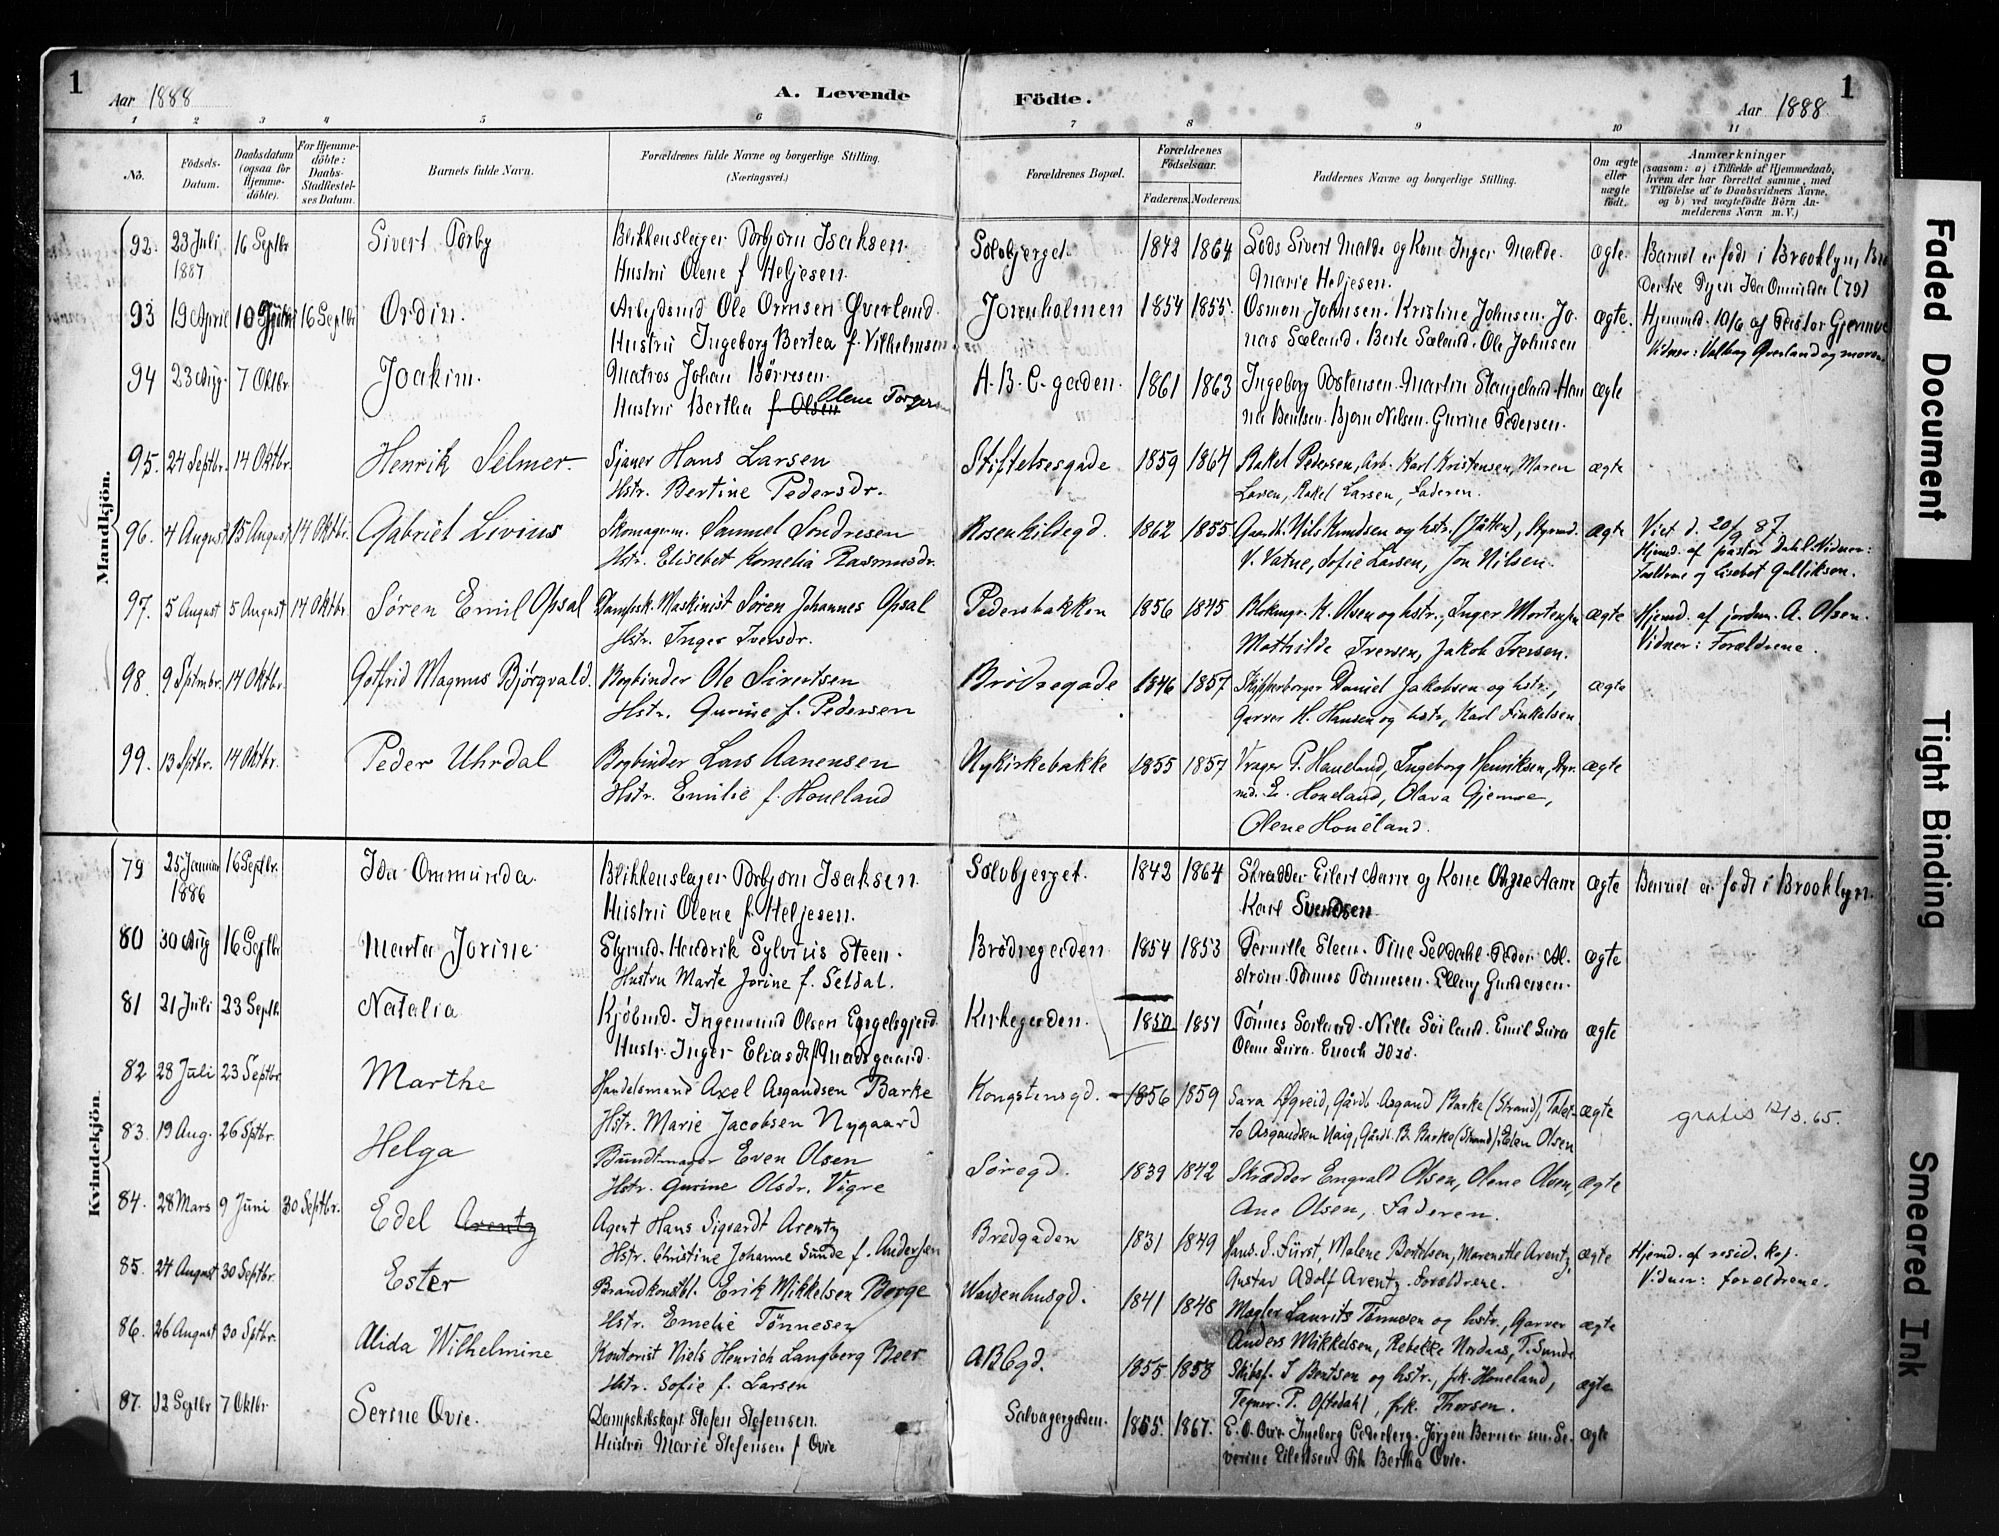 1
Aar 1888
A. Levende
Födte.
Aar 1888
1
1 2 3 4 5 6 7 8 9 10 11
No.
Födsels-Datum.
Daabsdatum (ogsaa for Hjemme-döbte).
For Hjemme-döbte: Daabs-Stadfæstel-ses Datum.
Barnets fulde Navn.
Forældrenes fulde Navne og borgerlige Stilling. (Næringsvei.)
Forældrenes Bopæl.
Forældrenes Födselsaar.
Faderens. Moderens.
Faddernes Navne og borgerlige Stilling.
Om ægte eller uægte födt.
Anmærkninger
(saasom: a) i Tilfælde af Hjemmedaab, hvem der har forrettet samme, med Tilföielse af to Daabsvidners Navne, og b) ved uægtefödte Börn An-melderens Navn m.V.)
Mandkjön.
92. 23 Juli 16 Septbr Sivert Torby Blikkenslager Torbjørn Isaksen. Solvbjerget. 1842 1864 Lods Sivert Malde og Kone Inger Malde. ægte. Barnet er født i Brooklyn,
1887 Hustru Olene f Heljesen. Marie Heljesen.
93 19 April 10 Juni 16 Septbr Ordin. Arbejdsmd Ole Ornsen Øverland. Jorenholmen 1854 1855. Osmon Johnsen. Kristine Johnsen. Jo- ægte. Hjemmd. 10/6 af Pastor Gjermoe
Hustru Ingeborg Bertea f. Vilhelmsen nas Sæland. Berte Sæland. Ole Johnsen Vidner: Valborg Øverland og moren
94 23 Aug. 7 Oktbr. Joakim. Matros Johan Börresen. A. B. C-gaden. 1861 1863 Ingeborg Tostensen. Martin Stangeland. Han ægte
Hustru Bertha f. Olsen Olene Torgers na Bentsen. Bjorn Nilsen. Gurine Pedersen.
95. 24 Septbr. 14 Oktbr. Henrik Selmer. Sjauer Hans Larsen Stiftelsesgade 1859 1864 Rakel Pedersen, Arb. Karl Kristensen, Maren ægte
Hstr. Bertine Pedersdr. Larsen, Rakel Larsen, Faderen.
96. 4 August 15 August 14 Oktbr. Gabriel Livius Skomagerm. Samuel Sondresen Rosenkildegd. 1862 1855 Gaardb. Nils Knudsen og hstr. (Jåtten), Styrmd. ægte Viet d. 20/9 87.
Hstr. Elisebet Kornelia Rasmusdr. V. Vatne, Sofie Larsen, Jon Nilsen. Hjemd. af pastor Dahl. Vidner:
og Lisebet Gulliksen.
97. 5 August 5 August 14 Oktbr Søren Emil Opsal Dampsk. Maskinist Søren Johannes Opsal Pedersbakken 1856 1845 Blokmgr. K. Olsen og hstr., Inger Mortensen ægte Hjemd. af jordm. A. Olsen.
Hstr. Inger Iversdr. Mathilde Iversen, Jakob Iversen. Vidner: Forældrene.
98. 9 Septmbr. 14 Oktbr. Gotfrid Magnus Björgvald. Bogbinder Ole Sivertsen Brödregade 1846 1857 Skipperborger Daniel Jakobsen og hstr., ægte
Hstr. Gurine f. Pedersen Garver H. Hansen og hstr, Karl Finkelsen.
99. 13 Septbr. 14 Oktbr. Peder Uhrdal Bogbinder Lars Aanensen Nykirkebakke 1855 1857 Vrager P. Haueland, Ingeborg Henriksen, Styr. ægte
Hstr. Emilie f. Honeland md. E. Honeland, Olava Gjemre,
Olene Honeland.
Kvindekjön.
79 25 Januar 16 Septbr. Ida Ommunda. Blikkenslager Torbjørn Isaksen. Solvbjerget. 1842 1864 Skrædder Eilert Aane og Kone Ane Aane ægte Barnet er født i Brooklyn.
1886 Hustru Olene f. Heljesen. Karl Svendsen
80 30 Aug 16 Septbr Marta Jorine Styrmd. Hendrik Sylvius Steen. Brödregaden 1854 1853 Pernille Steen. Tine Seldahl. Peder Al- ægte
Hustru Marte Jorine f. Seldal. strøm. Tönnes Tönnesen. Elling Gundersen.
81 21 Juli 23 Septbr Natalia Kjöbmd. Ingemund Olsen Engelsgjerd Kirkegaden. 1850 1851 Tönnes Soiland. Nille Soiland. Emil Lura ægte
Hustr. Inger Eliasdr f. Madsgaard. Olene Lura. Enoch Idsö.
82 28 Juli 23 Septbr. Marthe Handelsmand Axel Asgaudsen Barke Kongstensgd. 1856 1859 Sara Øgreid, Gårdb. Asgaud Barke (Strand), Taler- ægte gratis 12/3. 65.
Hstr. Marie Jacobsen Nygaard to Asgaudsen Vaig, Gårdb. B. Barke (Strand), Elen Olsen
83. 19 Aug. 26 Sptbr. Helga Bundtmager Even Olsen Söregd. 1839 1842 Skrædder Engvald Olsen, Olene Olsen, ægte
Hstr. Gurine Olsdr. Vigre Ane Olsen, Faderen.
84. 28 Mars 9 Juni 30 Septbr. Edel Arentz Agent Hans Sigvardt Arentz Bredgaden 1831 1849 Hans. S. Fürst, Malene Bertelsen, Marensthe Arentz, ægte Hjemd. af resid. kap.
Hstr. Christine Johanne Sunde f. Andersen Gustav Adolf Arentz. Forældrene. Vidner: forældrene.
85. 24 August 30 Septbr. Ester Brandkonstbl. Erik Mikkelsen Berge Waisenhusgd. 1841 1848 Mægler Laurits Tönnesen og hstr., Garver ægte
Hstr. Emelie Tönnesen Anders Mikkelsen, Rebekke Nordaas, T. Sunde
86. 26 August 30 Sptbr. Alida Wilhelmine Kontorist Niels Henrich Langberg Beer ABCgd. 1855 1858 Skibsf. I Bentsen og hstr., frk. Honeland, ægte
Hstr. Sofie f. Larsen Tegner P. Oftedahl, frk. Thorsen.
87. 12 Septbr 7 Oktbr. Serine Ovie. Dampskibskapt Stefen Stefensen. Salvagergaden. 1855. 1867. E. O. Ovie. Ingeborg Cederberg. Jørgen Berner sen. Se- ægte
Hustru Marie Stefensen f Ovie verine Eilertsen. Frk Bertha Ovie.
Faded Document
Tight Binding
Smeared Ink